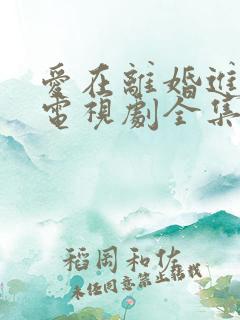 愛在離婚進
電視劇全集
稻岡和佐
未任同意禁止轉載